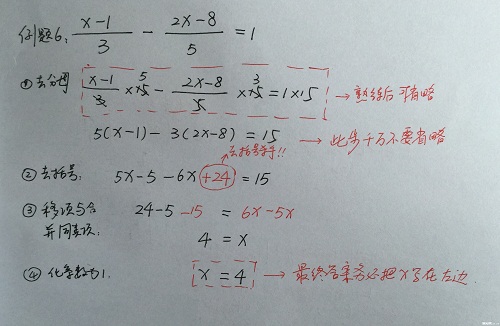 例题6: (x-1)/3 - (2x-8)/5 = 1
①去分母 (x-1)/3 × 15 - (2x-8)/5 × 15 = 1×15 → 熟练后可省略
5 3
5(x-1) - 3(2x-8) = 15 → 此步千万不要省略
去括号变号!!
②去括号: 5x-5-6x+24 = 15
③移项与合 24-5-15 = 6x-5x
并同类项: 4 = x
④化系数为1. x = 4 → 最终答案务必把x写在左边